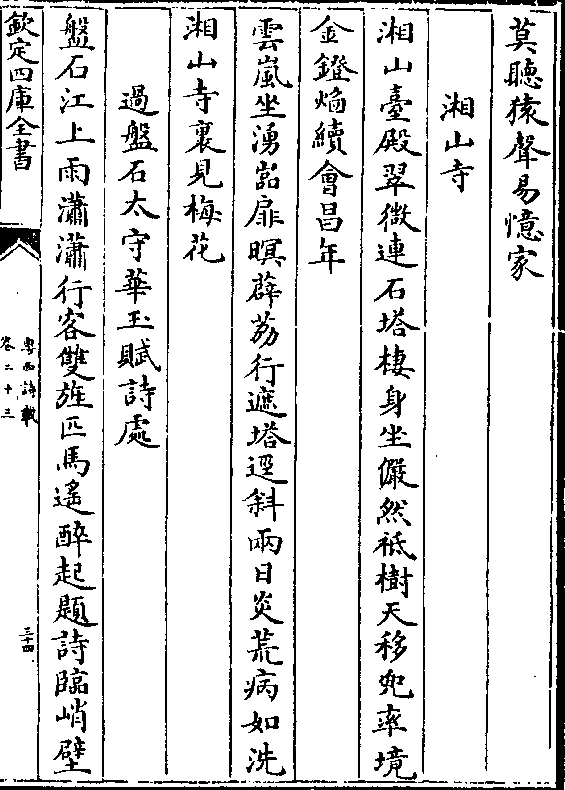 莫聽猿聲易憶家
湘山寺
湘山臺殿翠微連石塔棲身坐儼然祇樹天移兜率境
金鐙焔續會昌年
雲嵐坐湧嵓扉暝薜荔行遮塔逕斜兩日炎荒病如洗
湘山寺裏見梅花
過盤石太守華玉賦詩處
盤石江上雨瀟瀟行客雙旌匹馬遙醉起題詩臨峭壁
欽定四庫全書
粵西詩載
卷二十三
三十四